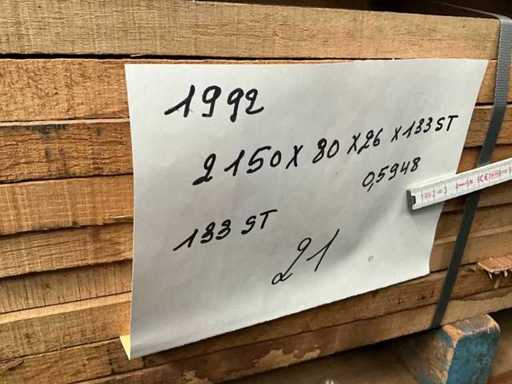 1992
2150 X 80 X 26 X 133 ST
0,5948
133 ST
21